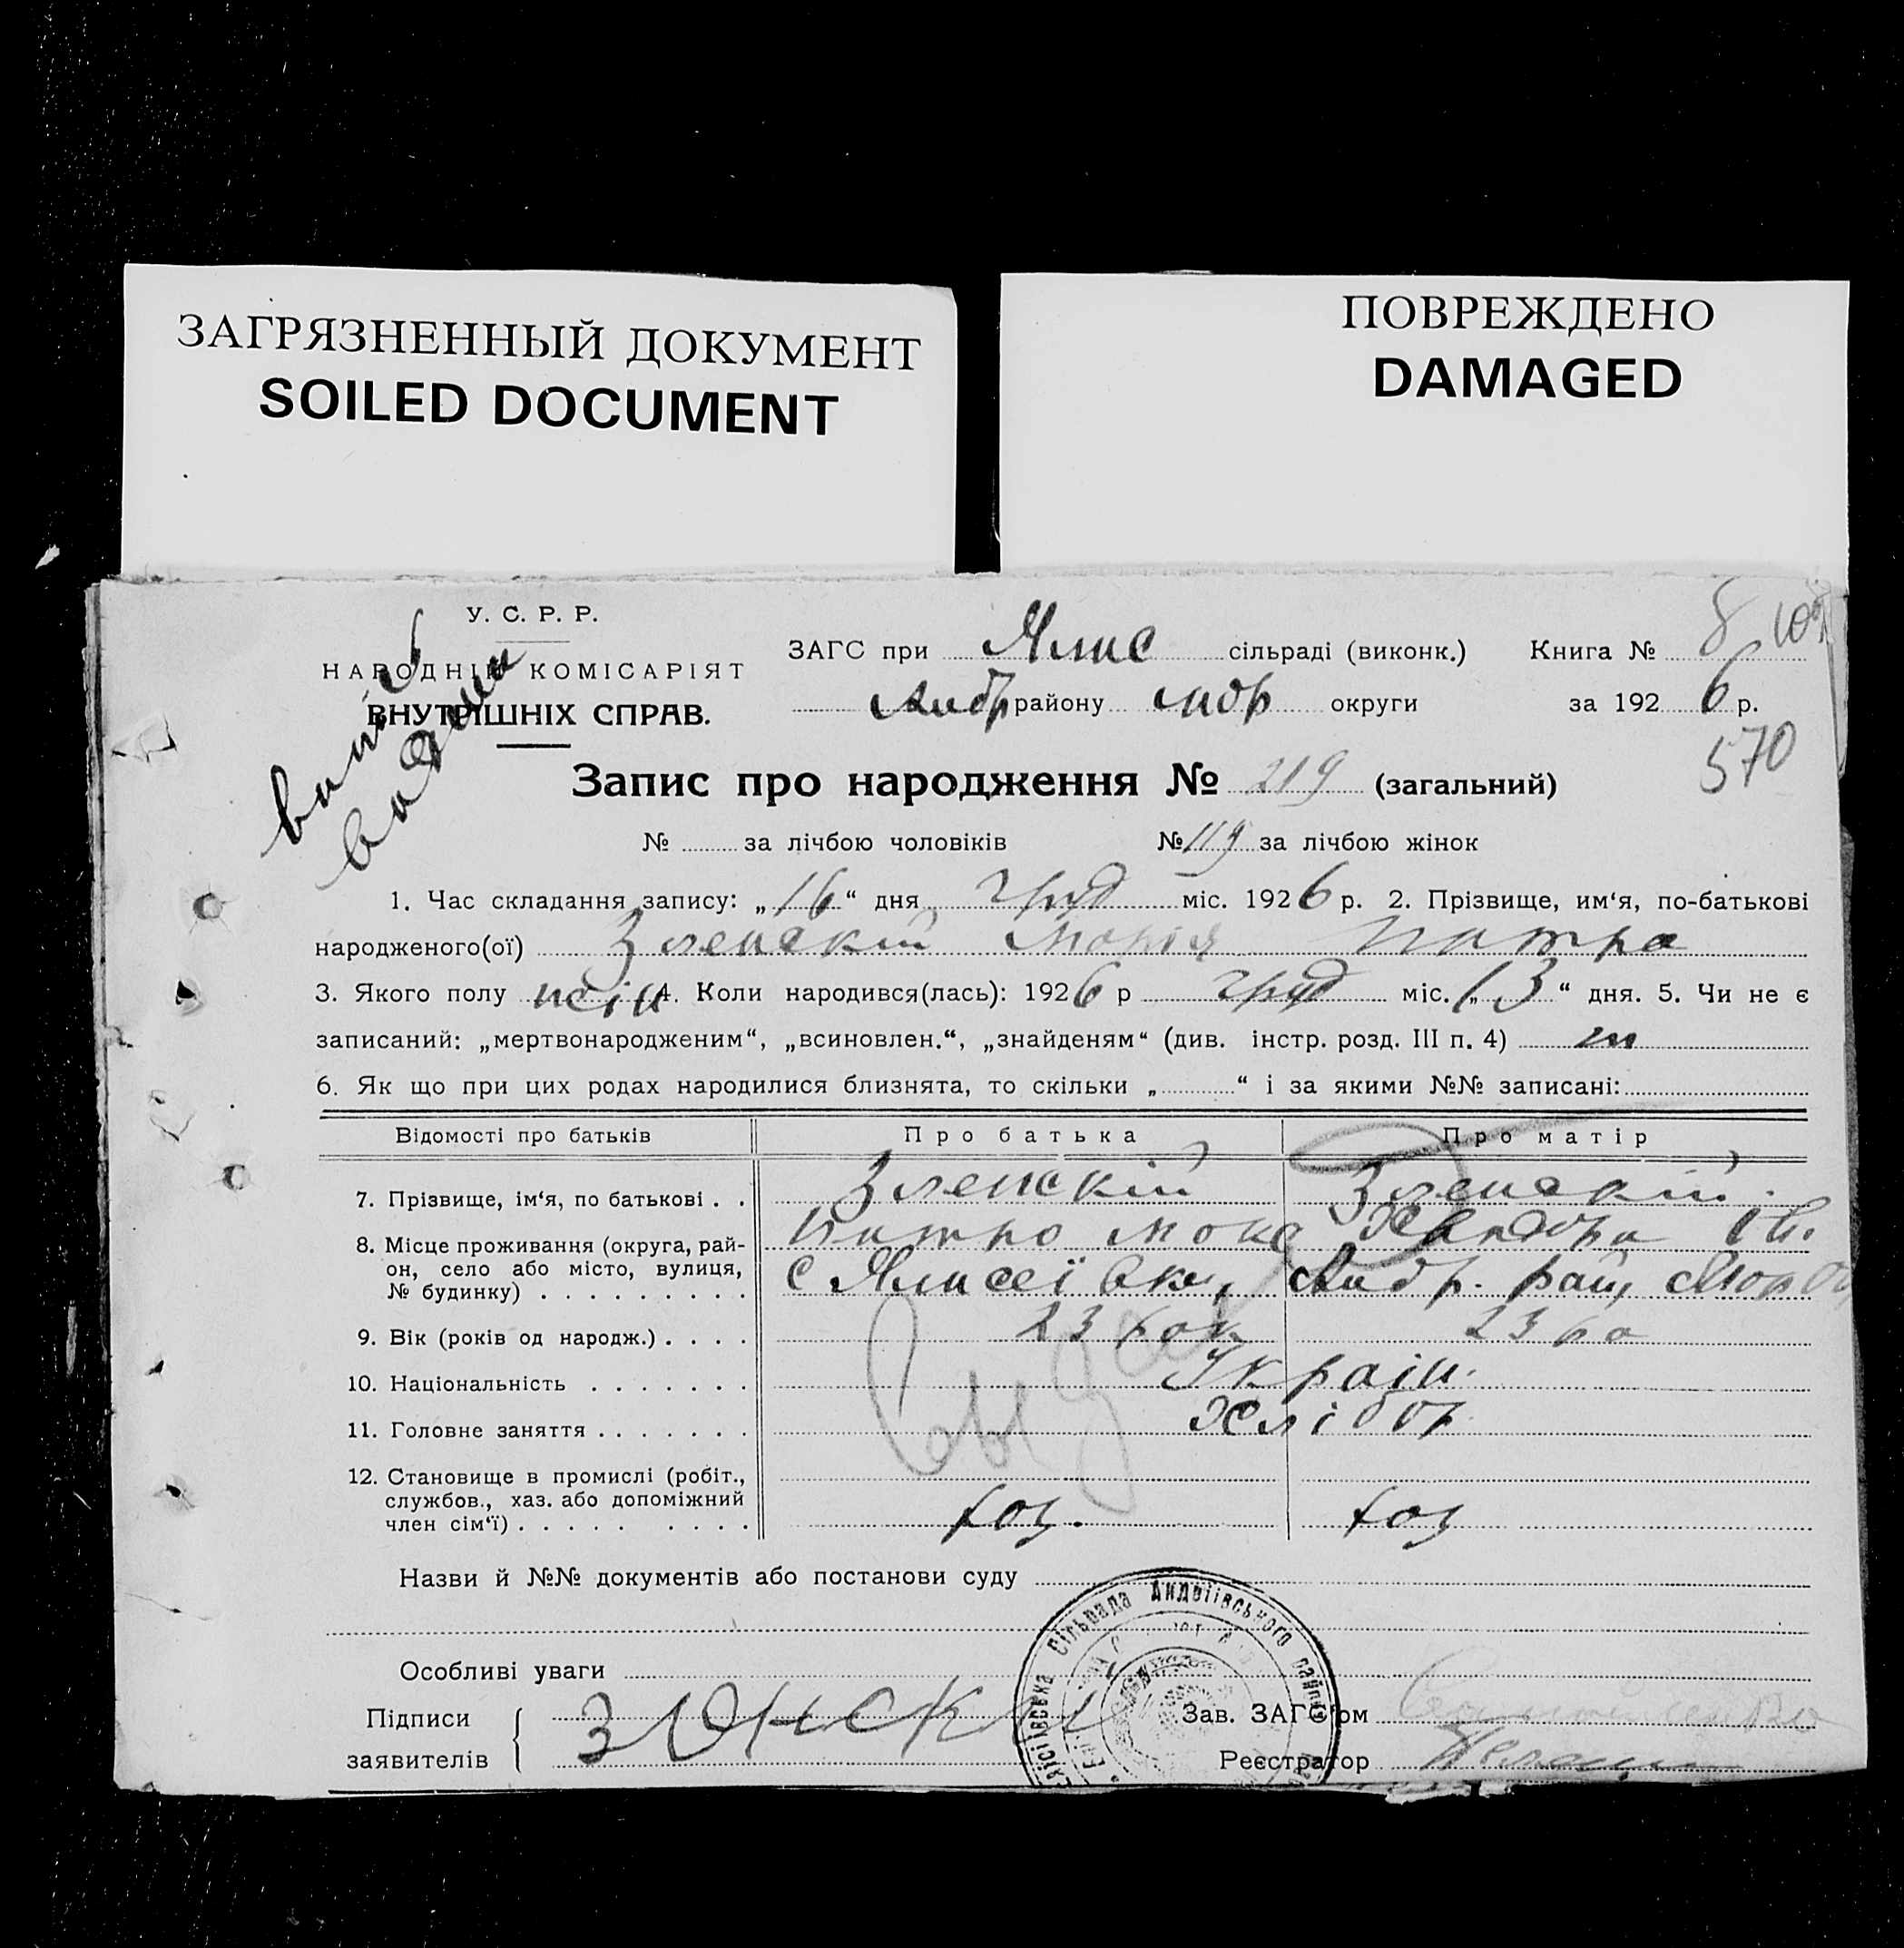 ЗАГРЯЗНЕННЫЙ ДОКУМЕНТ
SOILED DOCUMENT
ПОВРЕЖДЕНО
DAMAGED
У. С. Р. Р.
НАРОДНІЙ КОМІСАРІЯТ
ВНУТРІШНІХ СПРАВ.
ЗАГС при сільраді (виконк.) Книга № 8
Андр району мдр округи за 1926 р.
570
Запис про народження № 219 (загальний)
№ за лічбою чоловіків № 119 за лічбою жінок
1. Час складання запису: „16“ дня груд міс. 1926 р. 2. Прізвище, им‘я, по-батькові
народженого(ої) Зленскій Марія Питра
3. Якого полу жін 4. Коли народився(лась): 1926 р груд міс. „13“ дня. 5. Чи не є
записаний: „мертвонародженим“, „всиновлен.“, „знайденям“ (див. інстр. розд. III п. 4)
6. Як що при цих родах народилися близнята, то скільки „ “ і за якими №№ записані:
Відомості про батьків Про батька Про матір
7. Прізвище, ім‘я, по батькові . . Зленскій Зленскій
Питро
8. Місце проживання (округа, рай-
он, село або місто, вулиця,
№ будинку) . . . . . . . . . с Андр. рай,
9. Вік (років од народж.) . . . . 23 рок 23 ро
10. Національність . . . . . . . Україн.
11. Головне заняття . . . . . . . Хлібор
12. Становище в промислі (робіт.,
службов., хаз. або допоміжний
член сім‘ї) . . . . . . . . . хоз. хоз
Назви й №№ документів або постанови суду
сільрада Андріївського району
Особливі уваги
Підписи
заявителів
Зленски
Зав. ЗАГС‘ом
Реєстратор